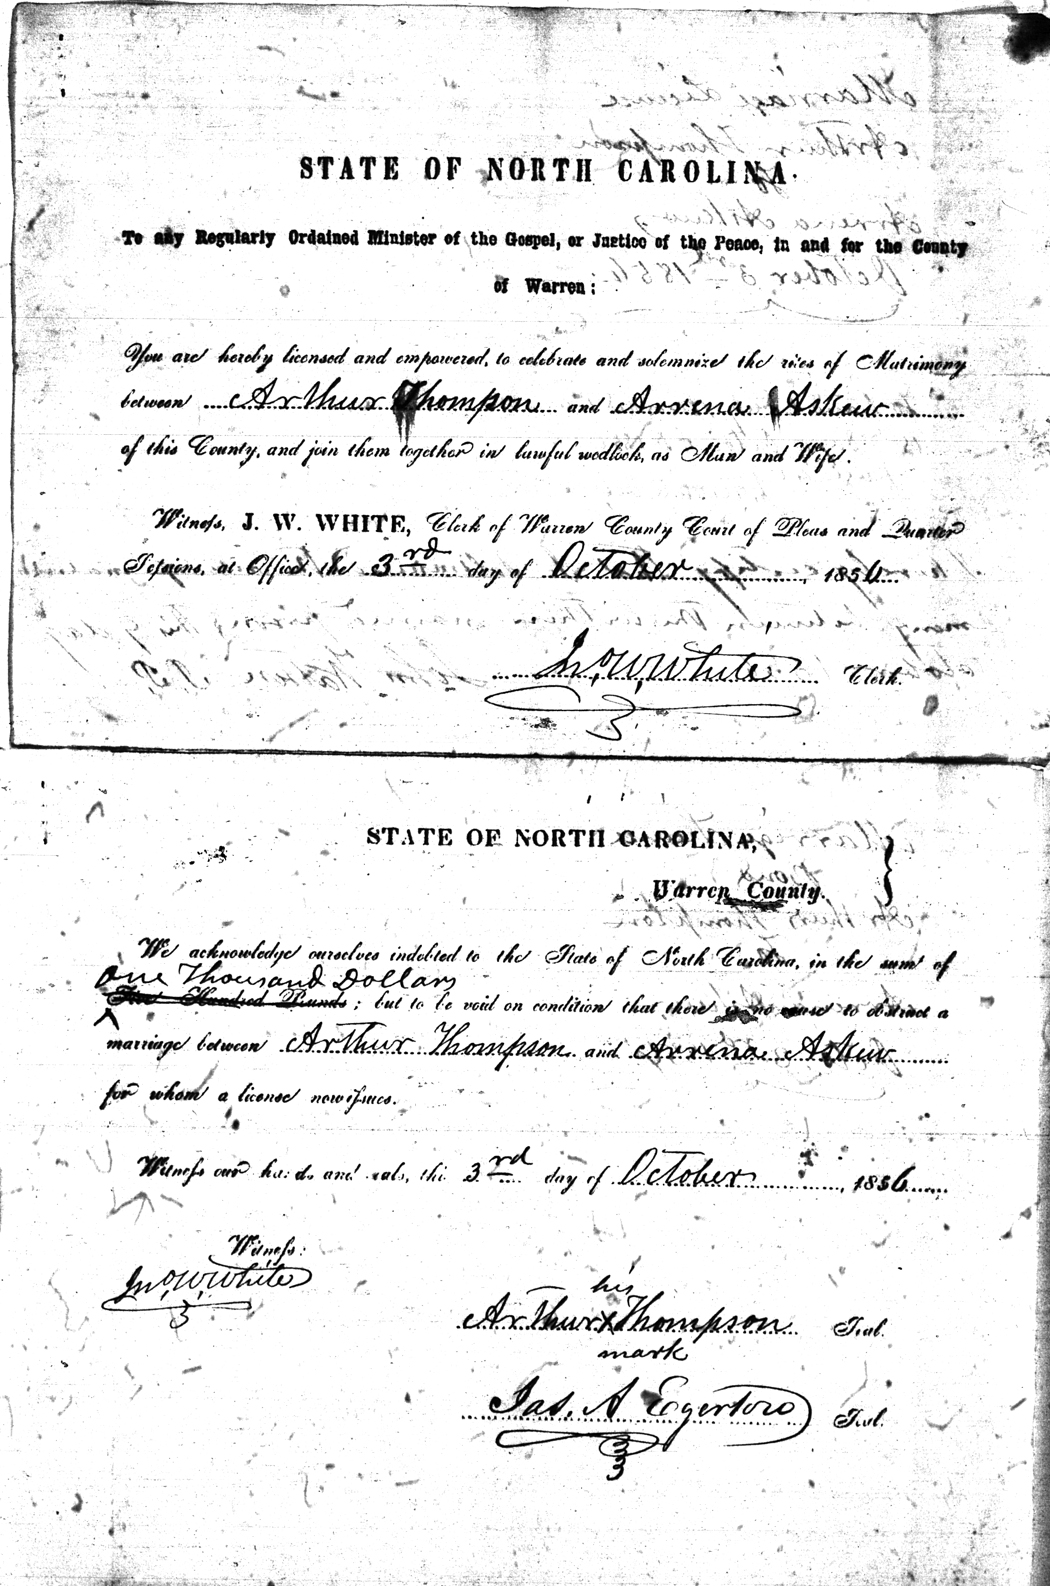 STATE OF NORTH CAROLINA.
To any Regularly Ordained Minister of the Gospel, or Justice of the Peace, in and for the County
of Warren:
You are hereby licensed and empowered, to celebrate and solemnize the rites of Matrimony
between Arthur Thompson and Arrena Askew
of this County, and join them together in lawful wedlock, as Man and Wife.
Witness, J. W. WHITE, Clerk of Warren County Court of Pleas and Quarter
Sessions, at Office, the 3rd day of October, 1856
Jno. W. White Clerk.
STATE OF NORTH CAROLINA,
Warren County.
We acknowledge ourselves indebted to the State of North Carolina, in the sum of
One Thousand Dollars
Five Hundred Pounds; but to be void on condition that there is no cause to obstruct a
marriage between Arthur Thompson and Arrena Askew
for whom a license now issues.
Witness our hands and seals, the 3rd day of October, 1856
Witness:
Jno. W. White
his
Arthur X Thompson Seal.
mark
Jas. A Egerton Seal.